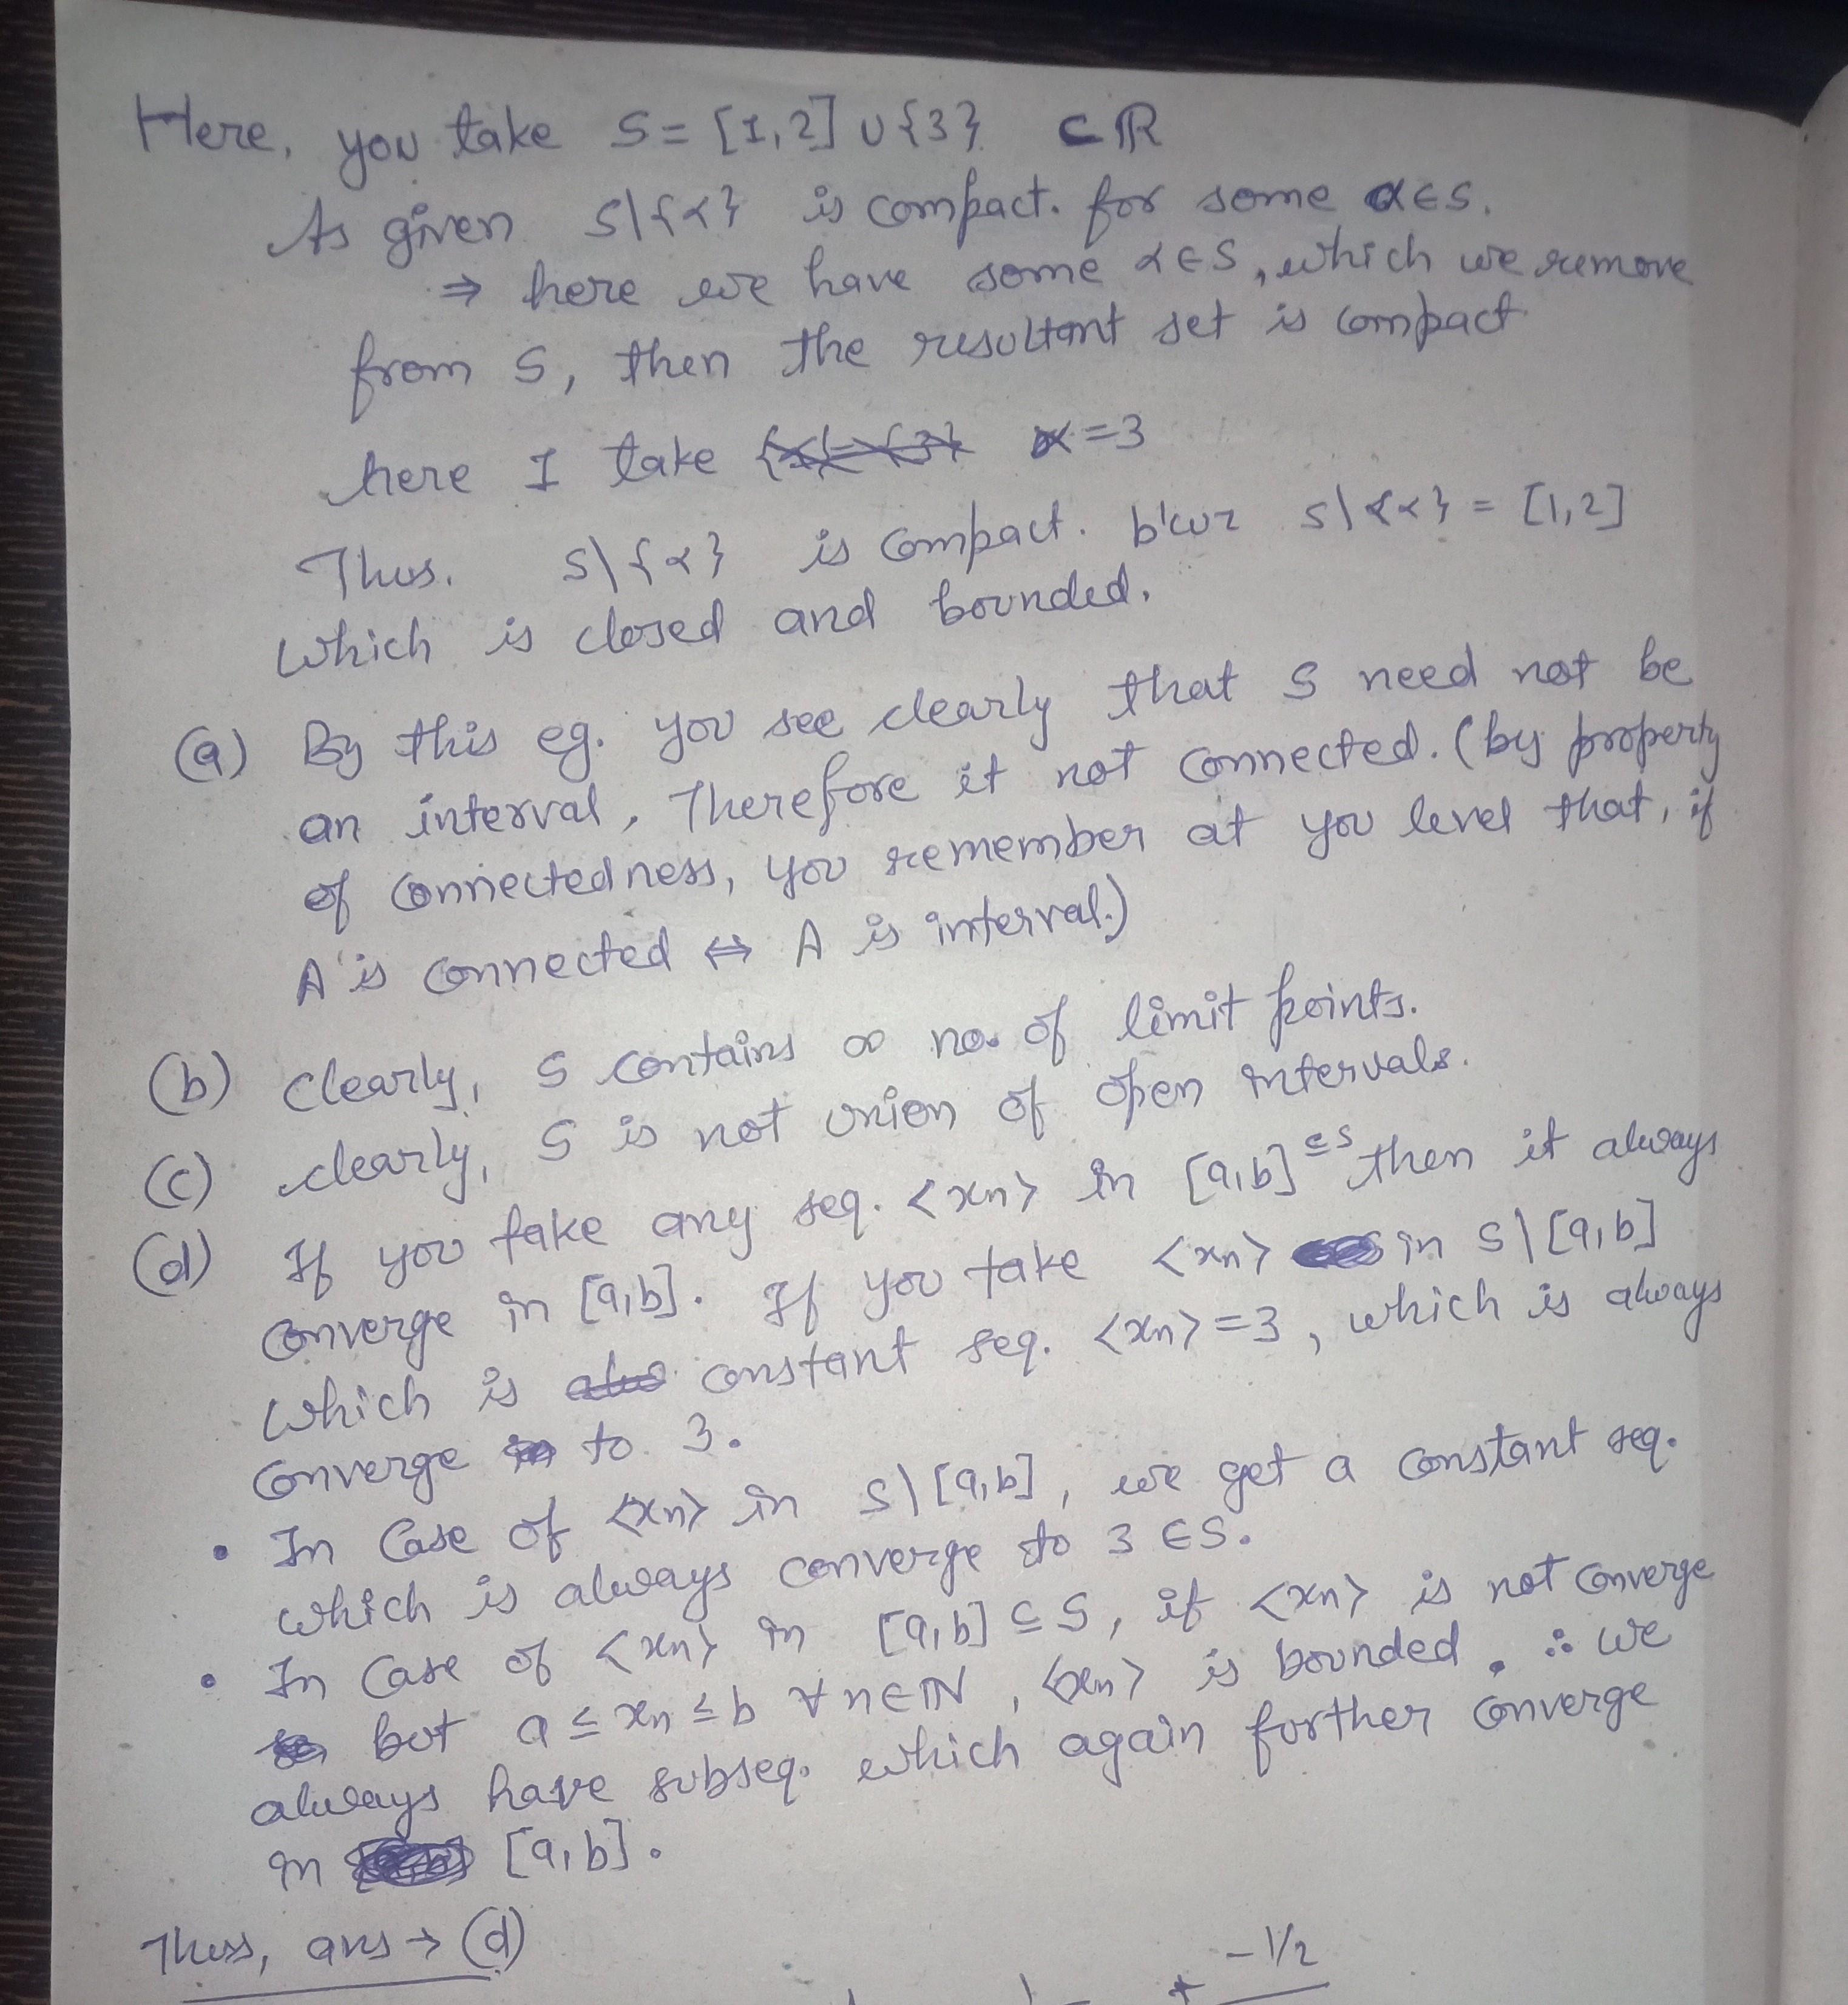 Here, you take S = [1,2] ∪ {3} ⊂ ℝ
As given S\{α} is compact. for some α∈S.
⇒ here we have some α∈S, which we remove
from S, then the resultant set is compact
here I take α = 3
Thus. S\{α} is compact. b'coz S\{α} = [1,2]
which is closed and bounded.
(a) By this eg. you see clearly that S need not be
an interval, Therefore it not connected. (by property
of connectedness, you remember at you level that, if
A is connected ⇔ A is interval.)
(b) Clearly, S contains ∞ no. of limit points.
(c) clearly, S is not union of open intervals.
(d) If you take any seq. <xn> in [a,b] ⊆S then it always
converge in [a,b]. If you take <xn> in S\[a,b]
which is constant seq. <xn> = 3, which is always
converge to 3.
• In Case of <xn> in S\[a,b], we get a constant seq.
which is always converge to 3 ∈ S.
• In Case of <xn> in [a,b] ⊆ S, if <xn> is not converge
but a ≤ xn ≤ b ∀ n∈ℕ, <xn> is bounded. ∴ we
always have subseq. which again further converge
in [a,b].
Thus, ans → (d)
+ -1/2